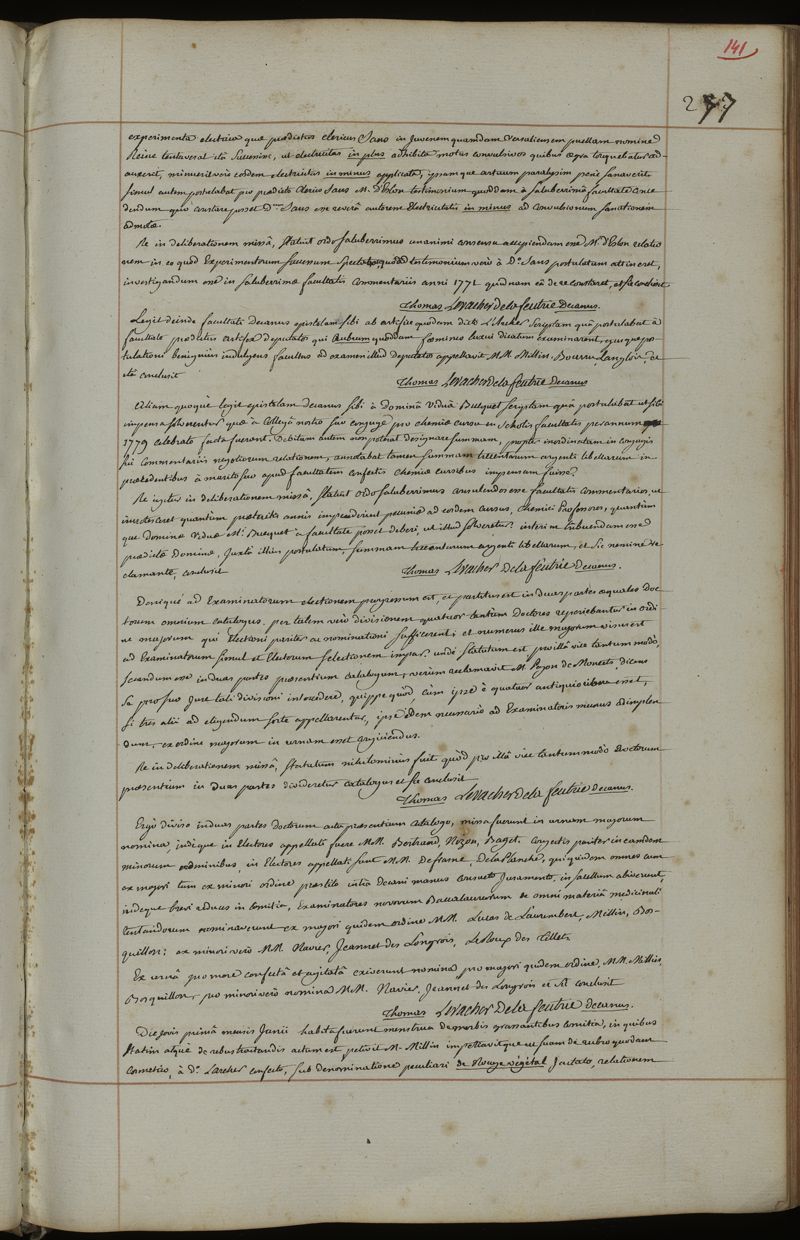 141
277
experimenta electrica quæ prædictus clericus Sans in juvenem quamdam Versaliensem puellam nomine
Reine tentaverat ità successisse, ut electricitas in plus adhibita motus convulsivos quibus ægra torquebatur ad-
auxerit, minuerit verò eadem electricitas in minus applicata, ipsamque artuum paralysim penè sanaverit.
simul autem postulabat pro prædicto clerico Sans M. D'Eslon testimonium quoddam à saluberrimâ facultate conce
dendum quo constare posset d.num Sans esse reverâ autorem Electricitatis in minus ad convulsionum sanationem
admotæ.
Re in deliberationem missâ, statuit ordo saluberrimus unanimi consensu accipiendam esse M.i d'Eslon relatio
nem in eo quod Experimentorum successum spectabat, quoad testimonium verò à D.o Sans postulatum attineret,
investigandum esse in saluberrimæ facultatis commentariis anni 1772 quidnam eâ de re constaret, et sic conclusit
Thomas Levacher de la feutrie Decanus.
Legit deinde facultati Decanus epistolam sibi ab artifice quodam dicto L'archer scriptam quâ postulabat à
facultate prædictus artifex Deputatos qui Rubrum quoddam fœmineo luxui dicatum examinarent, ejusque pos-
tulationi benigniùs indulgens facultas ad examen illud Deputatos appellavit MM. Millin, Bourru, Langlois, &
ità conclusit
Thomas Levacher de la feutrie Decanus
Aliam quoque legit epistolam decanus sibi à Dominâ Viduâ Bucquet scriptam quâ postulabat ut sibi
impensa solverentur quæ à Collegâ nostro suo conjuge pro chemiæ cursu in scholis facultatis per annum
1779 celebrato facta fuerunt. Debitam autem non poterat designare summam, propter inordinatam in conjugis
sui commentariis negotiorum relationem, annotabat tamen summam trecentarum argenti libellarum in
præcedentibus à marito suo apud facultatem confectis chemiæ cursibus impensam fuisse.
Re igitur in deliberationem missâ, statuit ordo saluberrimus consulendos esse facultatis commentarios, ut
innotesceret quantùm præteritis annis impenderint pecuniæ ad eosdem cursus, chemici Professores, quantùm
que Dominæ Viduæ M.i Bucquet à facultate posset deberi, ut illud solveretur: interim tribuendam esse
prædictæ Dominæ, juxta illius postulatum, summam trecentarum argenti libellarum, et sic nemine re
clamante, conclusit
Thomas Levacher De la feutrie Decanus.
Denique ad Examinatorum electionem progressum est, et partitus est in duas partes æquales doc
torum omnium catalogus. per talem verò divisionem quatuor tantùm Doctores reperiebantur in ordi
ne majorum qui Electioni pariter ac nominationi sufficerent; et numerus ille majorum visus est
ad Examinatorum simul et Electorum selectionem impar. undè statutum est pro illâ vice tantum modò,
secandum esse in duas partes præsentium catalogum, verùm reclamavit M. Pajon de Moncets dicens
se pro suo jure tali divisioni intercedere, quippe quòd, cum ipse è quatuor antiquioribus esset,
si tres alii ad eligendum forte appellarentur, ipse idem necessario ad Examinatoris munus adimplen
dum, ex ordine majorum in urnam esset conjiciendus.
Re in deliberationem missâ, statutum nihilominus fuit quòd pro illâ vice tantummodò Doctorum
præsentium in duas partes divideretur catalogus et sic conclusit
Thomas Levacher de la feutrie Decanus.
Ergò diviso in duas partes doctorum actu præsentium catalogo, missa fuerunt in urnam majorum
nomina, indeque in Electores appellati fuere MM. Bertrand, Nizon, Baget. conjectis pariter in eamdem
minorum nominibus, in Electores appellati sunt MM. Defrasne, De la Planche, qui quidem omnes tam
ex majori tùm ex minori ordine præstito intrà Decani manus consueto juramento, in sacellum abierunt,
indeque brevi reduces in comitia, Examinatores novorum Baccalaureorum de omni materiâ medicinali
tentandorum nominaverunt ex majori quidem ordine MM. Lucas de Laurembert, Millin, Bos-
quillon; ex minori verò MM. Navier, Jeannet des Longrois, LeLoup des Tillets
Ex urnâ pro more confectâ et agitatâ exiverunt nomina pro majori quidem ordine, MM. Millin,
Bosquillon, pro minori verò nomina MM. Navier, Jeannet des Longrois et sic conclusit
Thomas Levacher De la feutrie decanus.
Die jovis primâ mensis Junii habita fuerunt menstrua de morbis grassantibus comitia, in quibus
statim atque de rebus tractandis actum est, petiit M. Millin impetravitque ut suam de rubro quodam
cosmetico, à d.o Larcher confecto, sub denominatione peculiari de Rouge végétal jactato, relationem